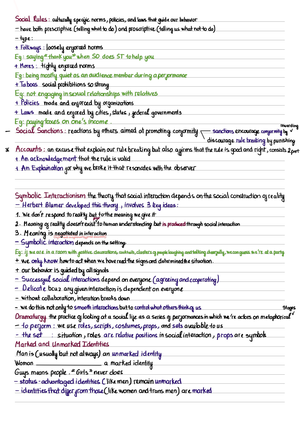 Social Rules : culturally specific norms, policies, and laws that guide our behavior
- have both prescriptive (telling what to do) and proscriptive (telling us what not to do)
- type :
+ Folkways : loosely enforced norms
Eg : saying "thank you" when SO. does ST to help you
+ Mores : tightly enforced norms
Eg : being mostly quiet as an audience member during a performance
+ Taboos : social prohibitions so strong
Eg : not engaging in sexual relationships with relatives
+ Policies made and enforced by organizations
+ Laws made and enforced by cities, states, federal governments
Eg : paying taxes on one's income
- Social Sanctions : reactions by others aimed at promoting conformity
sanctions encourage conformity by rewarding
discourage rule breaking by punishing
* Accounts : an excuse that explain our rule breaking but also affirms that the rule is good and right, consists 2 part
+ An acknowledgement that the rule is valid
+ An Explanation for why we broke it that resonates with the observer
Symbolic Interactionism the theory that social interaction depends on the social construction of reality
- Herbert Blumer developed this theory, involves 3 key ideas :
1. We don't respond to reality but to the meaning we give it
2. Meaning of reality doesn't exist to human understanding but is produced through social interaction
3. Meaning is negotiated in interaction
- Symbolic interaction depends on the setting.
Eg : if we are in a room with festive decorations, clusters of people laughing and talking sharply, we can guess we're at a party
- We only know how to act when we have read the signs and determined the situation.
+ our behavior is guided by all signals
- Successful social interactions depend on everyone (agreeing and cooperating)
- Delicate b/c any given interaction is dependent on everyone
- without collaboration, interaction breaks down
- we do this not only to smooth interactions but to control what others think of us
Dramaturgy the practice of looking at social life as a series of performances in which we're actors on metaphorical stages
- to perform : we use roles, scripts, costumes, props, and sets available to us
- the set : situation, roles are relative positions in social interaction, props are symbols
Marked and Unmarked Identities
Man is (usually but not always) an unmarked identity
Woman a marked identity
Guys means people. "Girls" never does
- status-advantaged identities (like men) remain unmarked
- identities that differ from those (like women and trans men) are marked